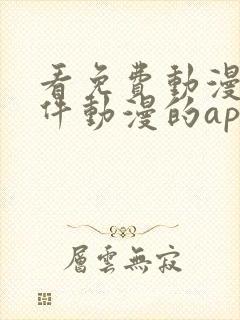 看免費動漫
件動漫的ap
層雲無寂